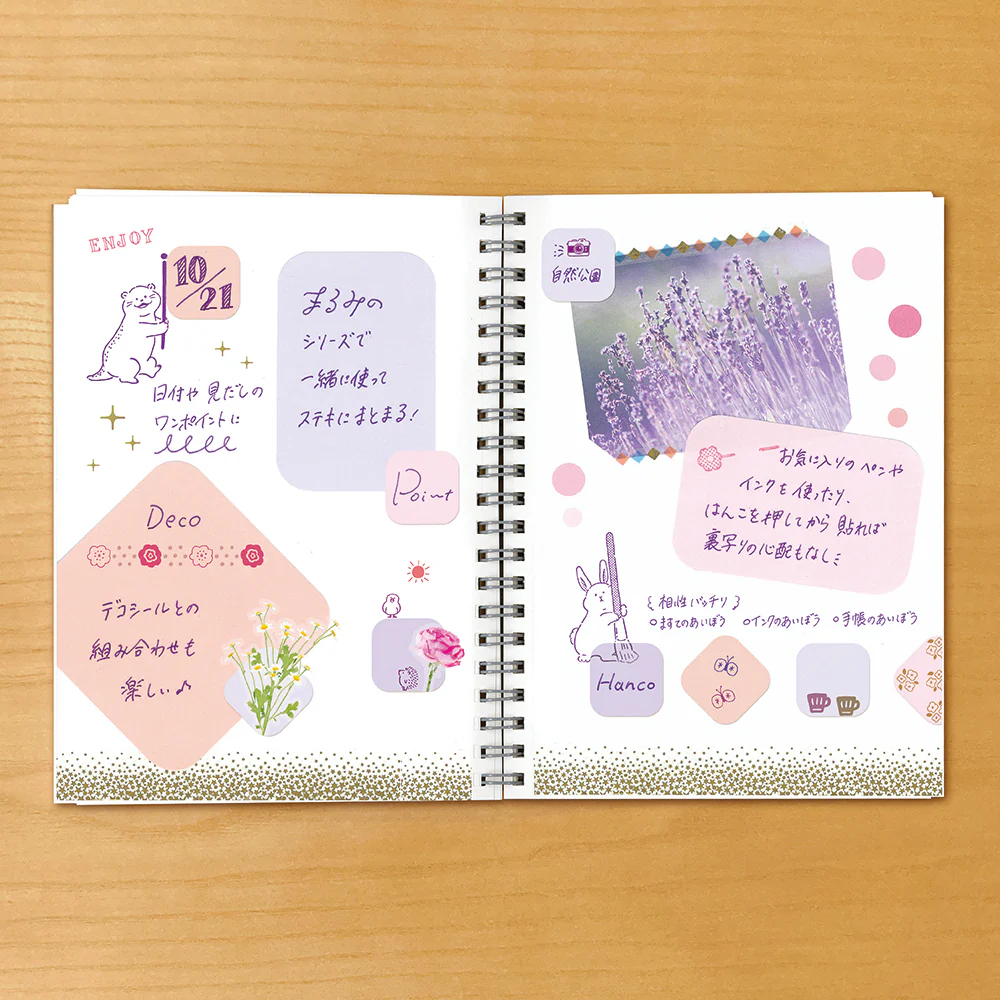 ENJOY
10/21
日付や見だしの
ワンポイントに
まるみの
シリーズで
一緒に使って
ステキにまとまる!
Point
Deco
デコシールとの
組み合わせも
楽しい♪
自然公園
お気に入りのペンや
インクを使ったり、
はんこを押してから貼れば
裏写りの心配もなし
{相性バッチリ}
○ますてのあいぼう ○インクのあいぼう ○手帳のあいぼう
Hanco